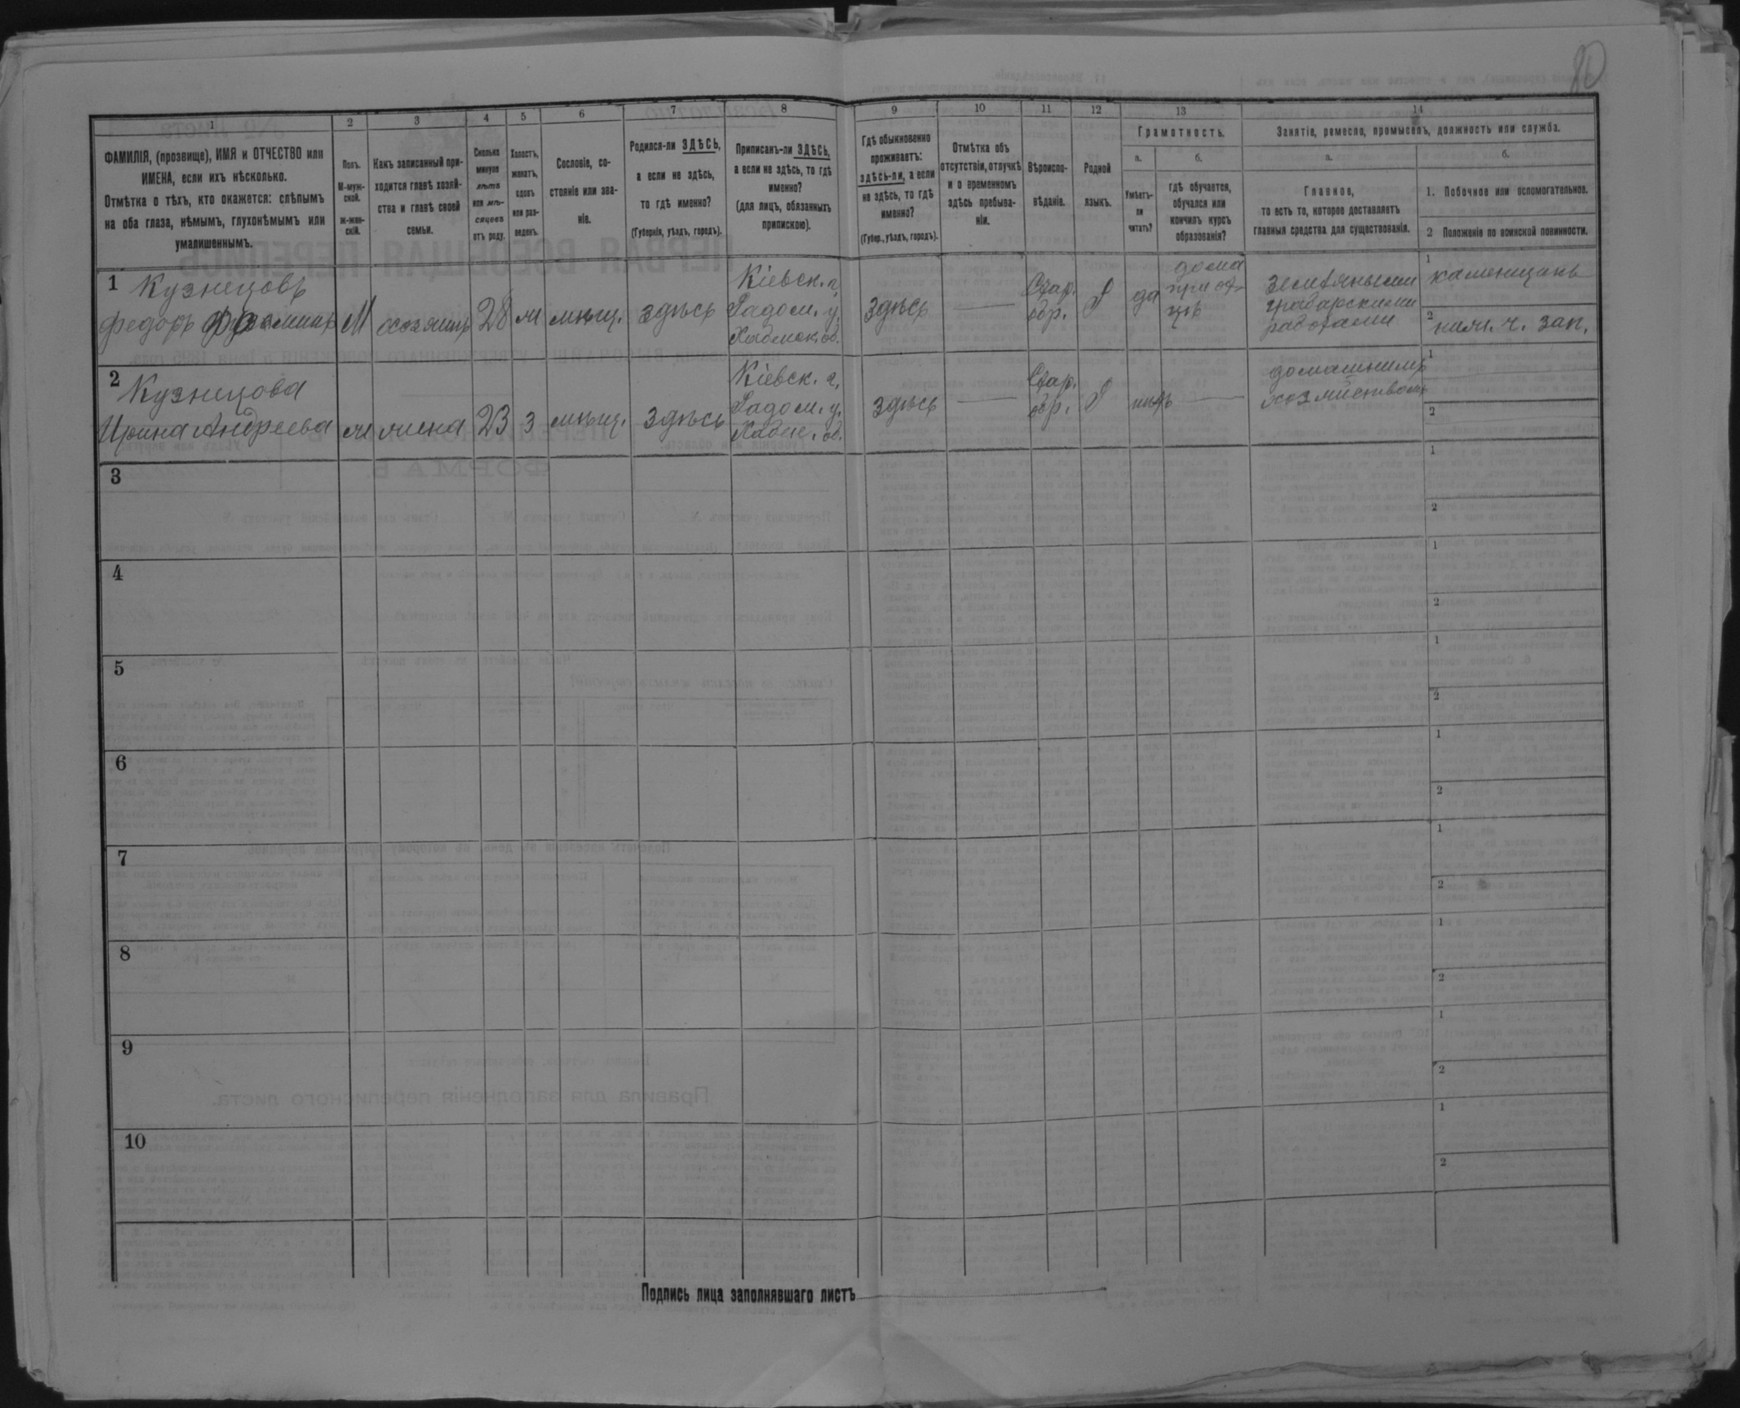 80
1
2
3
4
5
6
7
8
9
10
11
12
13
14
ФАМИЛІЯ, (прозвище), ИМЯ и ОТЧЕСТВО или
ИМЕНА, если ихъ нѣсколько.
Отмѣтка о тѣхъ, кто окажется: слѣпымъ
на оба глаза, нѣмымъ, глухонѣмымъ или
умалишеннымъ.
Полъ.
М-муж-
ской.
Ж-жен-
скій.
Какъ записанный при-
ходится главѣ хозяй-
ства и главѣ своей
семьи.
Сколько
минуло
лѣтъ
или мѣ-
сяцевъ
отъ роду.
Холостъ,
женатъ,
вдовъ
или раз-
веденъ.
Сословіе, со-
стояніе или зва-
ніе.
Родился-ли ЗДѢСЬ,
а если не здѣсь,
то гдѣ именно?
(Губернія, уѣздъ, городъ).
Приписанъ-ли ЗДѢСЬ,
а если не здѣсь, то гдѣ
именно?
(для лицъ, обязанныхъ
припискою).
Гдѣ обыкновенно
проживаетъ:
здѣсь-ли, а если
не здѣсь, то гдѣ
именно?
(Губер., уѣздъ, городъ).
Отмѣтка объ
отсутствіи, отлучкѣ
и о временномъ
здѣсь пребыва-
ніи.
Вѣроиспо-
вѣданіе.
Родной
языкъ.
Грамотность.
а.
Умѣетъ-
ли
читать?
б.
гдѣ обучается,
обучался или
кончилъ курсъ
образованія?
Занятіе, ремесло, промыселъ, должность или служба.
а.
Главное,
то есть то, которое доставляетъ
главныя средства для существованія.
б.
1. Побочное или вспомогательное.
2 Положеніе по воинской повинности.
1
Кузнецовъ
Федоръ
М
хозяинъ
28
ж
мѣщ.
здѣсь
Кіевск. г,
Радом. у.
здѣсь
Стар.
обр.
Р
да
дома
при от-
цѣ
земляными
грабарскими
работами
1
каменщикъ
2
2
Кузнецова
Ирина Андреева
ж
жена
23
З
мѣщ.
здѣсь
Кіевск. г,
Радом. у.
здѣсь
Стар.
обр.
Р
нѣтъ
домашнимъ
хозяйствомъ
1
2
3
1
2
4
1
2
5
1
2
6
1
2
7
1
2
8
1
2
9
1
2
10
1
2
Подпись лица заполнявшаго листъ